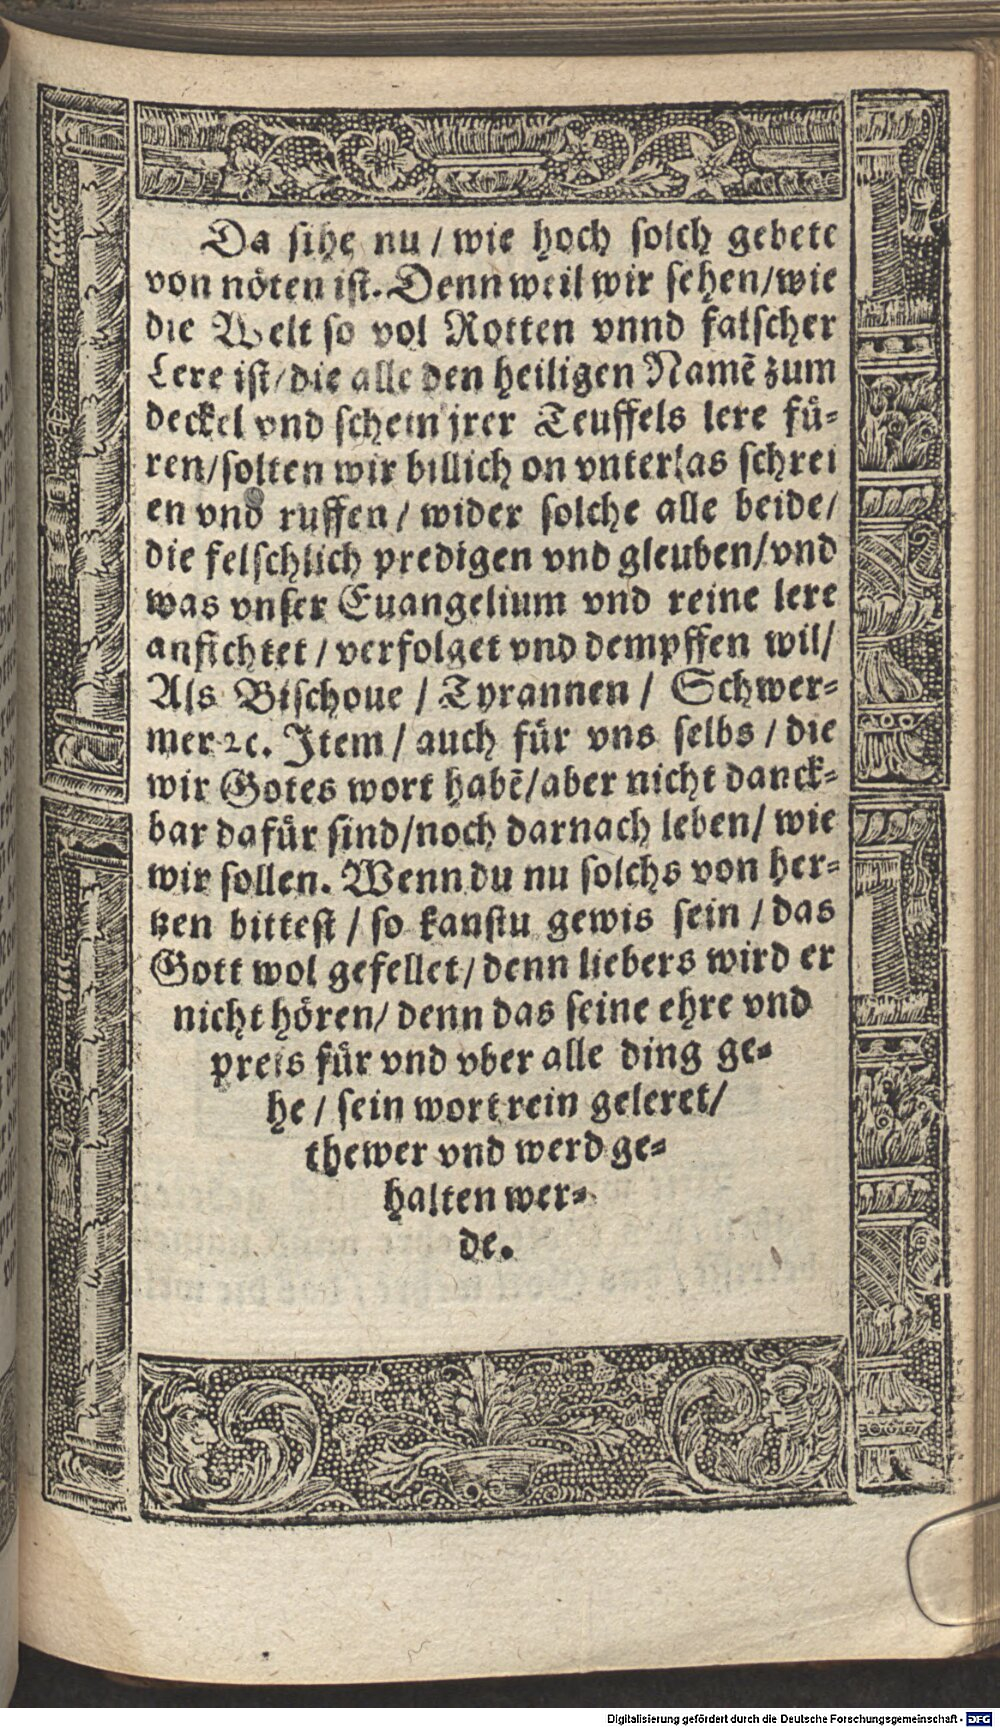 Da sihe nu / wie hoch solch gebete
von nöten ist. Denn weil wir sehen/wie
die Welt so vol Rotten vnnd falscher
Lere ist/die alle den heiligen Namē zum
deckel vnd schein jrer Teuffels lere fuͤ-
ren/solten wir billich on vnterlas schrei
en vnd ruffen / wider solche alle beide/
die felschlich predigen vnd gleuben/vnd
was vnser Euangelium vnd reine lere
anfichtet / verfolget vnd dempffen wil/
Als Bischoue / Tyrannen / Schwer-
mer ꝛc. Item / auch fuͤr vns selbs / die
wir Gotes wort habē/aber nicht danck-
bar dafuͤr sind/noch darnach leben/ wie
wir sollen. Wenn du nu solchs von her-
tzen bittest / so kanstu gewis sein / das
Gott wol gefellet/ denn liebers wird er
nicht hören/ denn das seine ehre vnd
preis fuͤr vnd vber alle ding ge-
he / sein wort rein geleret/
thewer vnd werd ge-
halten wer-
de.
Digitalisierung gefördert durch die Deutsche Forschungsgemeinschaft - DFG